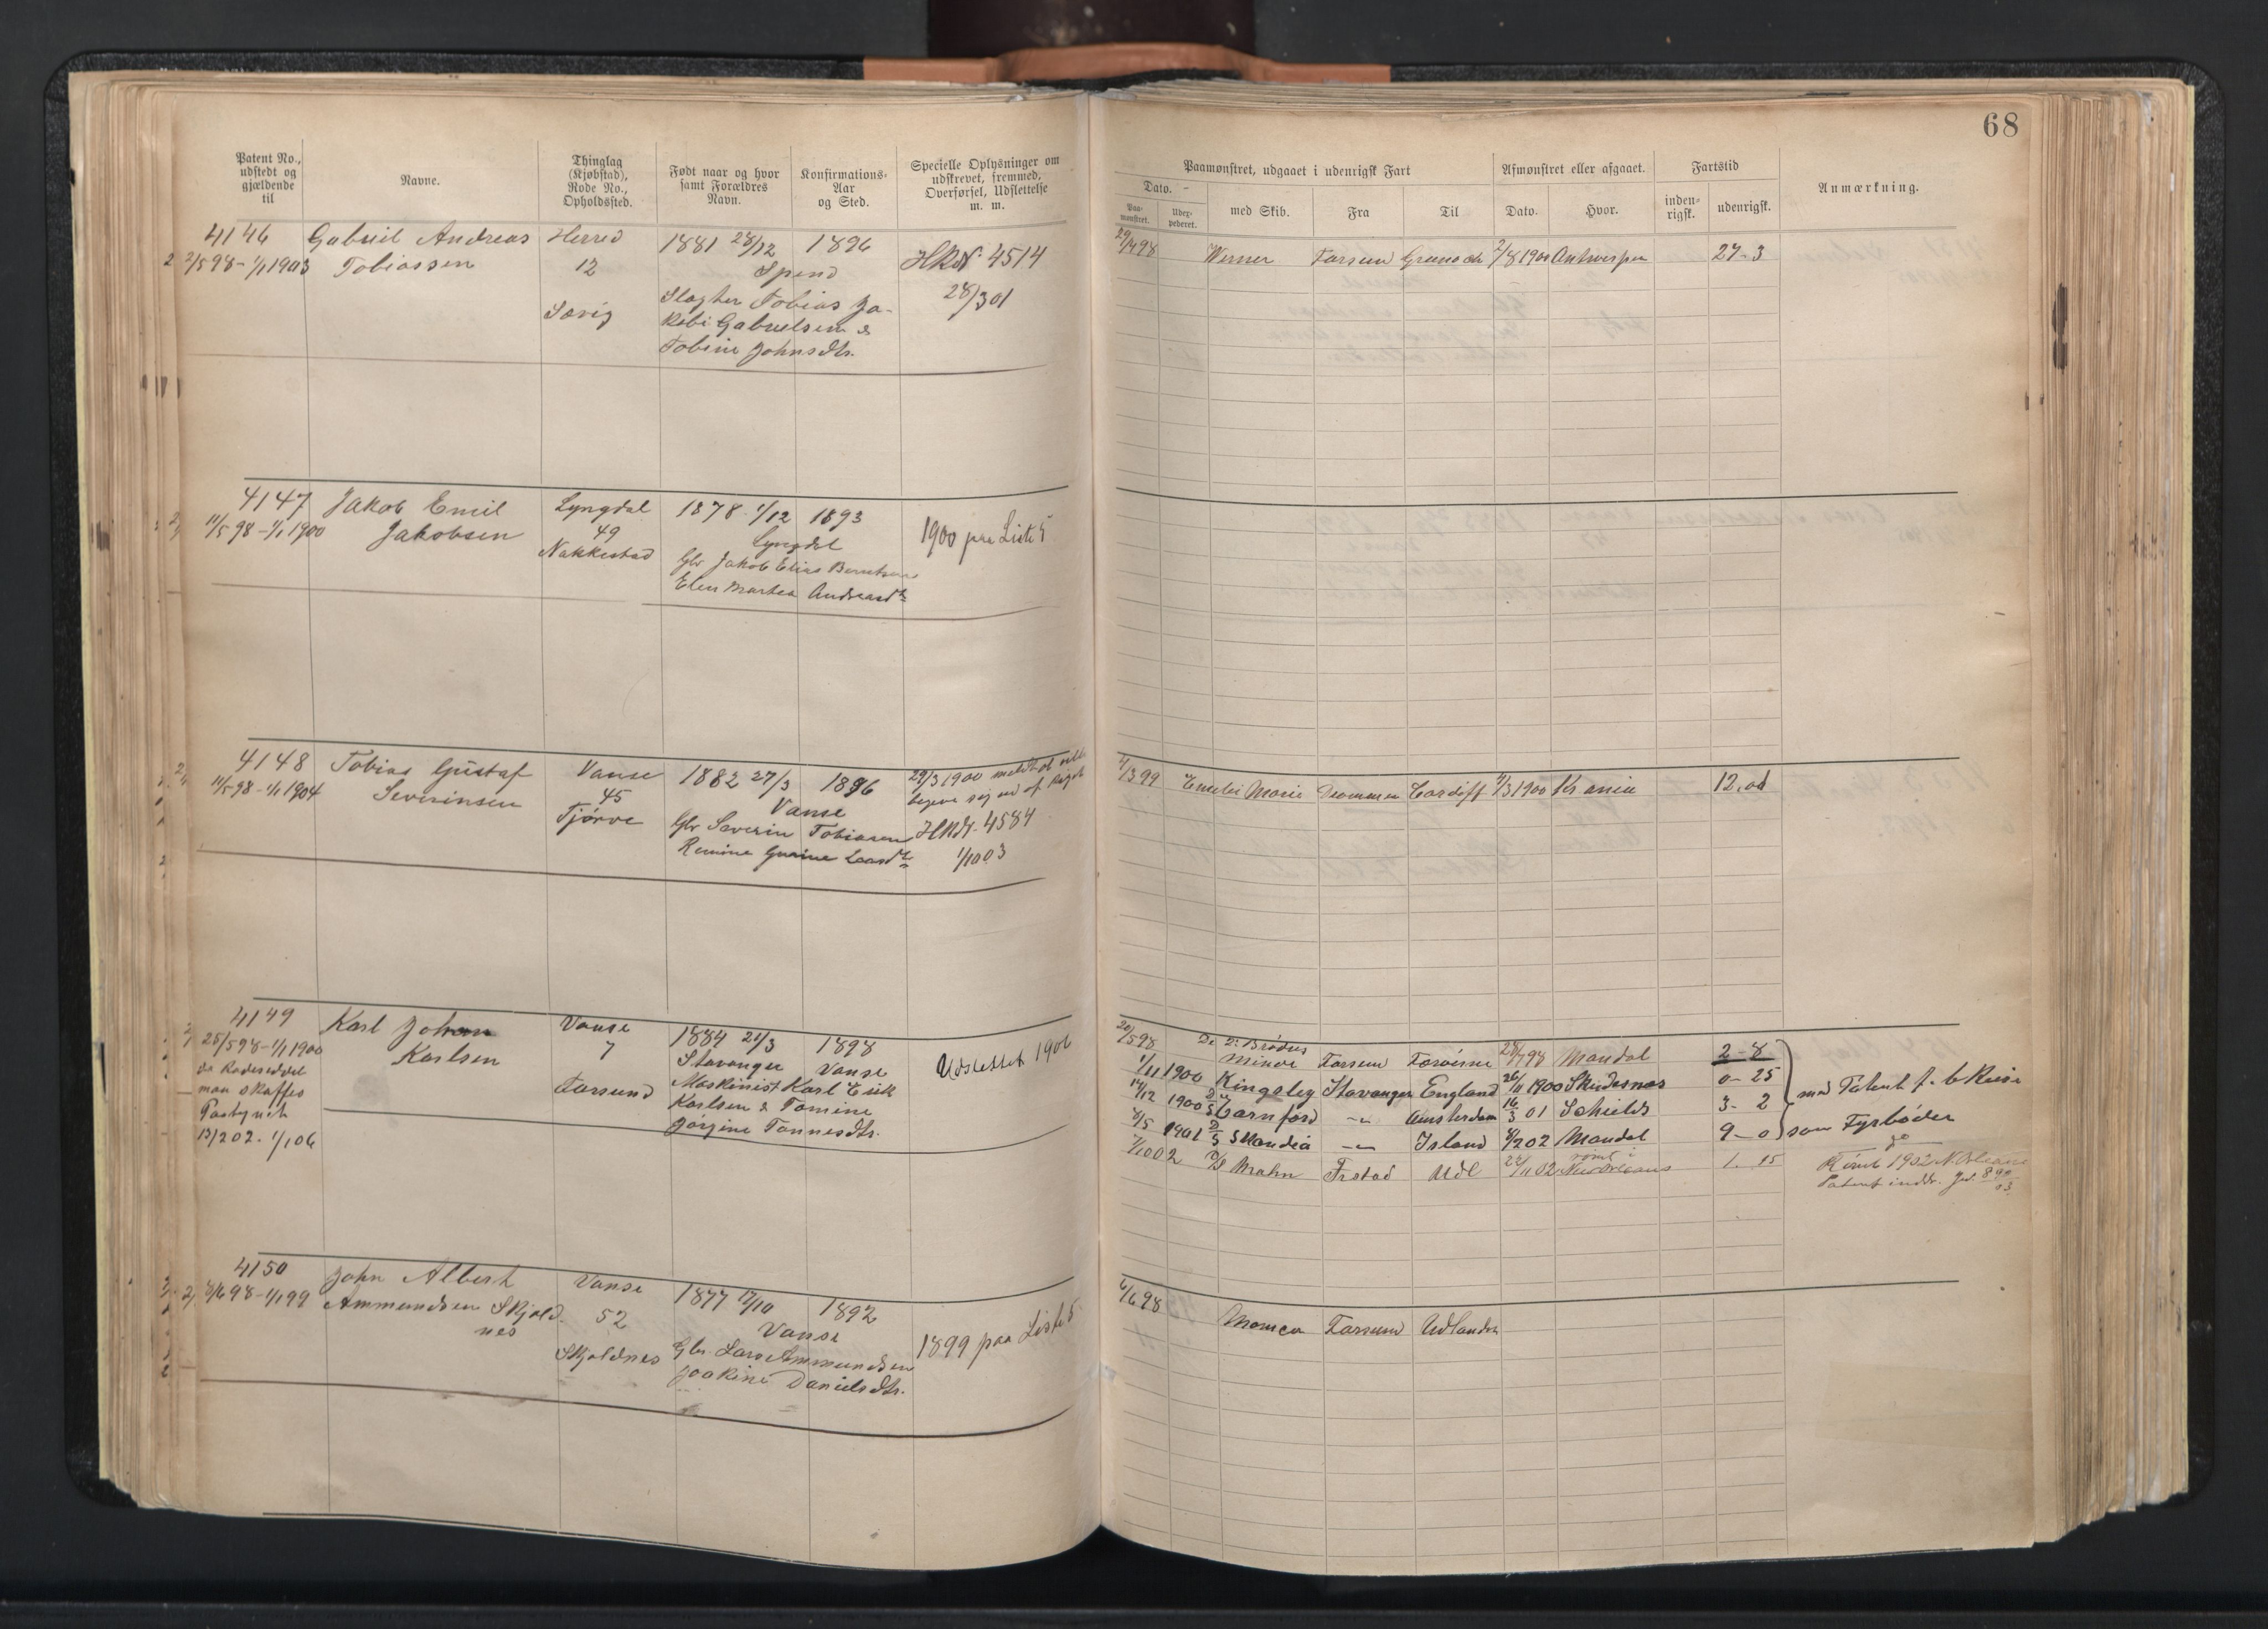 68
Patent No., udstedt og gjældende til
Navne.
Thinglag (Kjøbstad), Rode No., Opholdssted.
Født naar og hvor samt Forældres Navn.
Konfirmations-Aar og Sted.
Specielle Oplysninger om udskrevet, fremmed, Overførsel, Udslettelse m. m.
Paamønstret, udgaaet i udenrigsk Fart
Afmønstret eller afgaaet.
Fartstid
Anmærkning.
Dato.
Paamønstret.
Udexpederet.
med Skib.
Fra
Til
Dato.
Hvor.
indenrigsk.
udenrigsk.
4146 Gabriel Andreas Herred 1881 28/12 1896
2/5 98 - 1/1 1903 Tobiassen 12 Spind HR N 4514
28/3 01
Sævig Slagter Tobias Ja-
kobi Gabrielsen &
Tobine Johnsdtr.
29/4 98 Werner Farsun 2/8 1900 Antwerpen 27-3
4147 Jakob Emil Lyngdal 1878 1/12 1893
11/5 98 - 1/1 1900 Jakobsen 49 Lyngdal 1900 paa Liste 5
Nakkestad Gbr Jakob Elias Berntsen
Elen Martea Andreasdtr
4148 Tobias Gustaf Vanse 1882 27/3 1896
11/5 98 - 1/1 1904 Severinsen 45 Vanse
Tjørve Gbr Severin Tobiasen
29/3 1900 meldt at ville
begive sig ud af Riget
HR Nr. 4584
1/10 03
4/3 99 Emelie Marie Drammen Cardiff 1900 Kr ania 12.0d
4149 Karl Johan Vanse 1884 21/3 1898
25/5 98 - 1/1 1900 Karlsen 7 Stavanger Vanse Udslettet 1906
da Rodeseddel Farsund Maskinist Karl Erik
man skaffes Karlsen & Tomine
Jørgine Tønnesdtr.
13/2 02. 1/1 06
20/5 98 De 2 Brødre
Minde Farsun 28/7 98 Mandal 2-8
1/11 1900 Kingsley Stavanger England 26/11 1900 Skudesnes 0-25 med Patent f.
14/12 1900 D/S Garnford -"- Amsterdam 16/3 01 Schields 3-2
8/5 1901 D/S Skandia -"- Island 8/2 02 Mandal 9-0 som Fyrbøder
7/10 02 D/S Frstad Udl 24/11 02 rømt i New Orleans 1. 15 Rømt 1902 N. Orleans
4150 John Albert Vanse 1877 17/10 1892
8/6 98 - 1/1 99 Ammundsen Skjold- 52 Vanse 1899 paa Liste 5
nes
Skjoldnes Gbr. Lars Ammundsen
Joakine Danielsdtr.
4/6 98 Farsund Udlandet